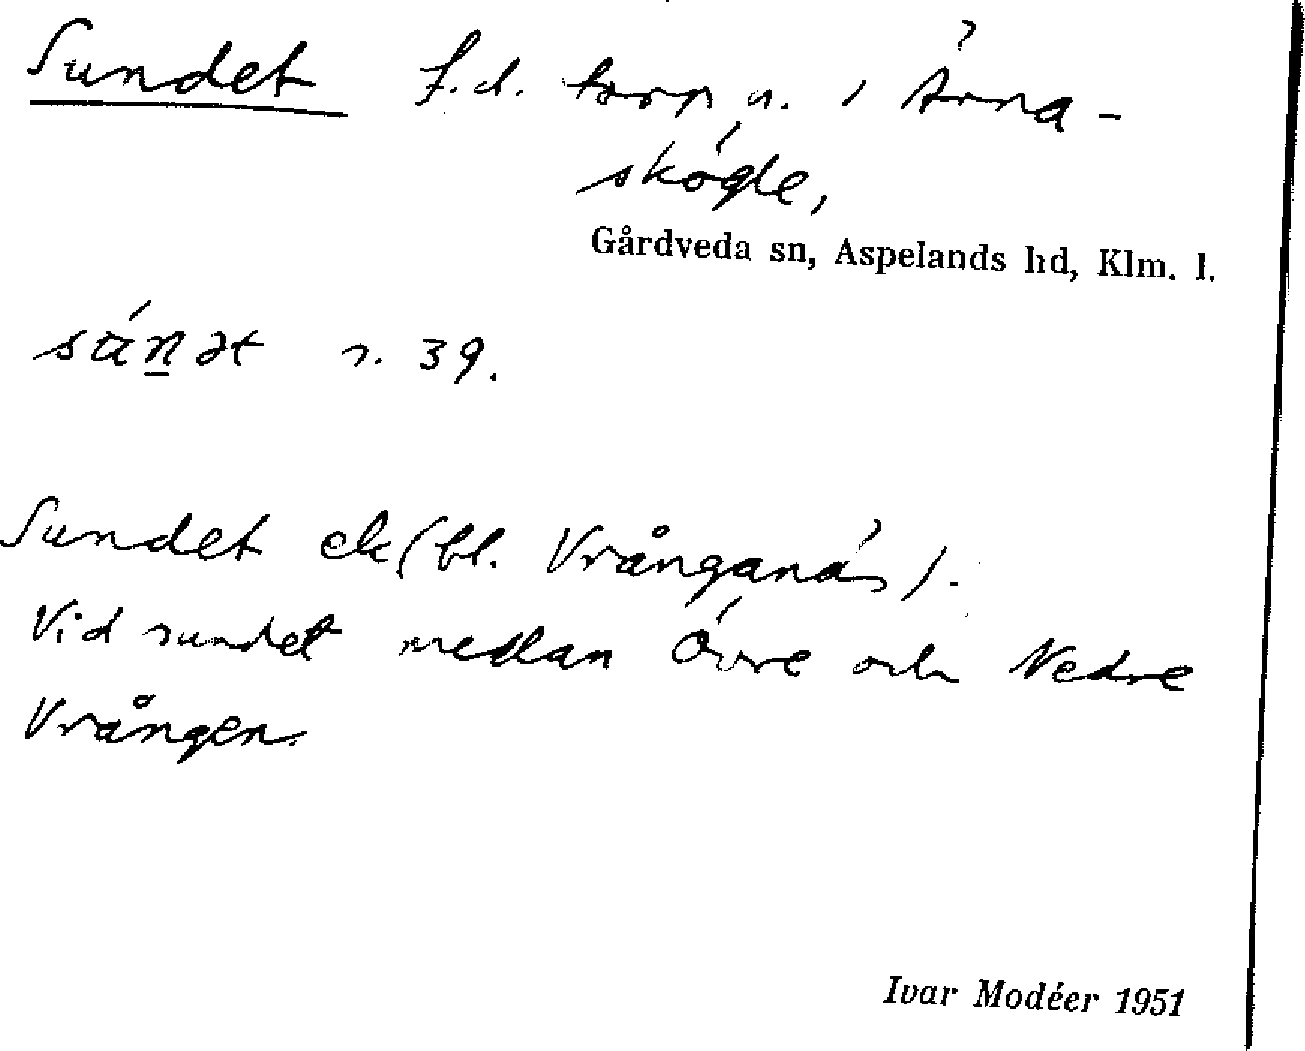 Sundet f.d. torp u. i Ärna-
skögle,
Gårdveda sn, Aspelands hd, Klm. l.
s. 39.
Sundet ek (bl. Vrånganäs).
Vid sundet medlan Övre och Nedre
Vrången.
Ivar Modéer 1951